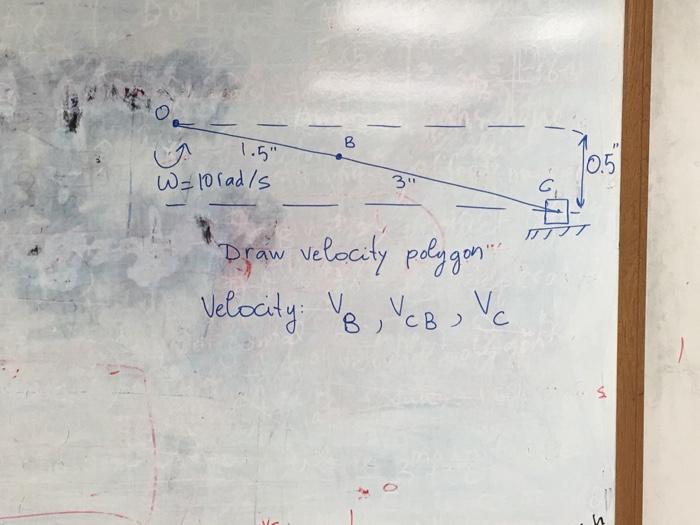 O
B
1.5"
0.5"
ω = 10 rad/s
3"
C
Draw velocity polygon
Velocity: V_B, V_CB, V_C
s